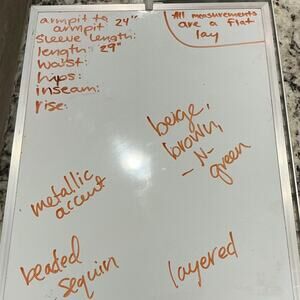 armpit to
armpit 24"
Sleeve length:
length: 29"
waist:
hips:
inseam:
rise:
All measurements
are a flat
lay
beige,
brown,
-N-
green
metallic
accent
beaded
sequin
layered